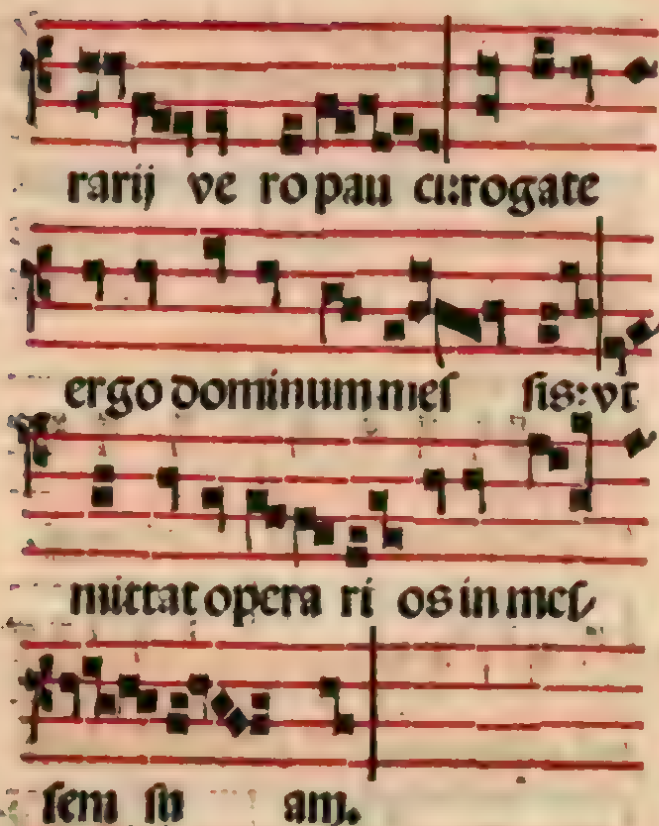 rarij ve ro pau ci:rogate
ergo dominum mes sis:vt
mittat opera ri os in mes
sem su am.